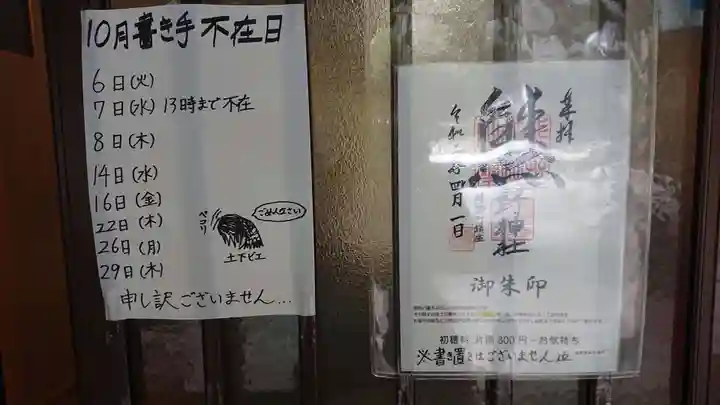 10月書き手不在日
6日(火)
7日(水) 13時まで不在
8日(木)
14日(水)
16日(金)
22日(木)
26日(月)
29日(木)
ごめんなさい
ペコリ
土下ビエ
申し訳ございません...
奉拝
熊野社
令和二年四月一日
御朱印
初穂料 お一人様 300円~お気持ち
※書き置きはございません